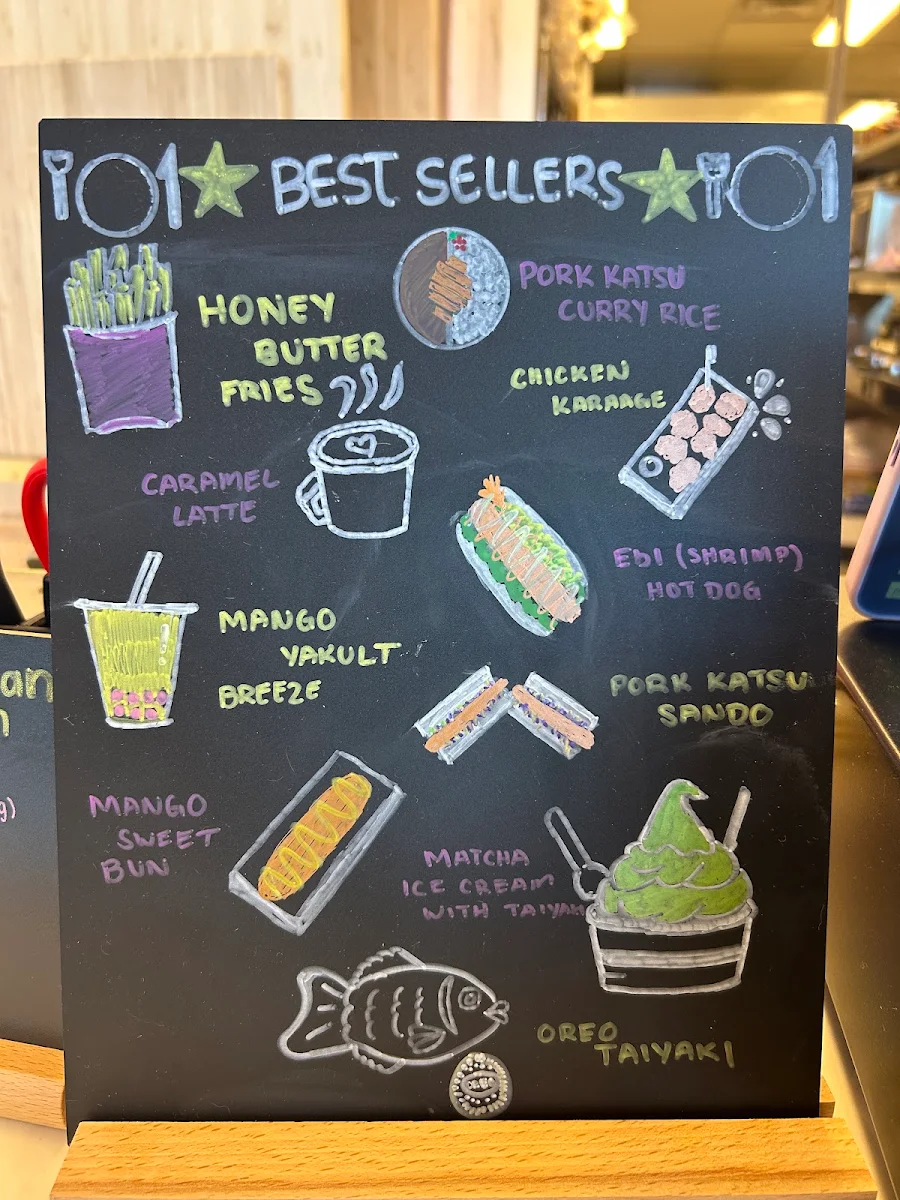 BEST SELLERS
HONEY
BUTTER
FRIES
PORK KATSU
CURRY RICE
CHICKEN
KARAAGE
CARAMEL
LATTE
EBI (SHRIMP)
HOT DOG
MANGO
YAKULT
BREEZE
PORK KATSU
SANDO
MANGO
SWEET
BUN
MATCHA
ICE CREAM
WITH TAIYAKI
OREO
TAIYAKI
an
n
g)